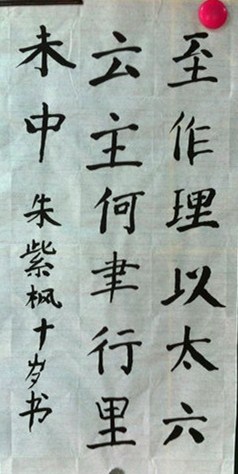 至作理以太六
云主何聿行里
未中
朱紫枫十岁书